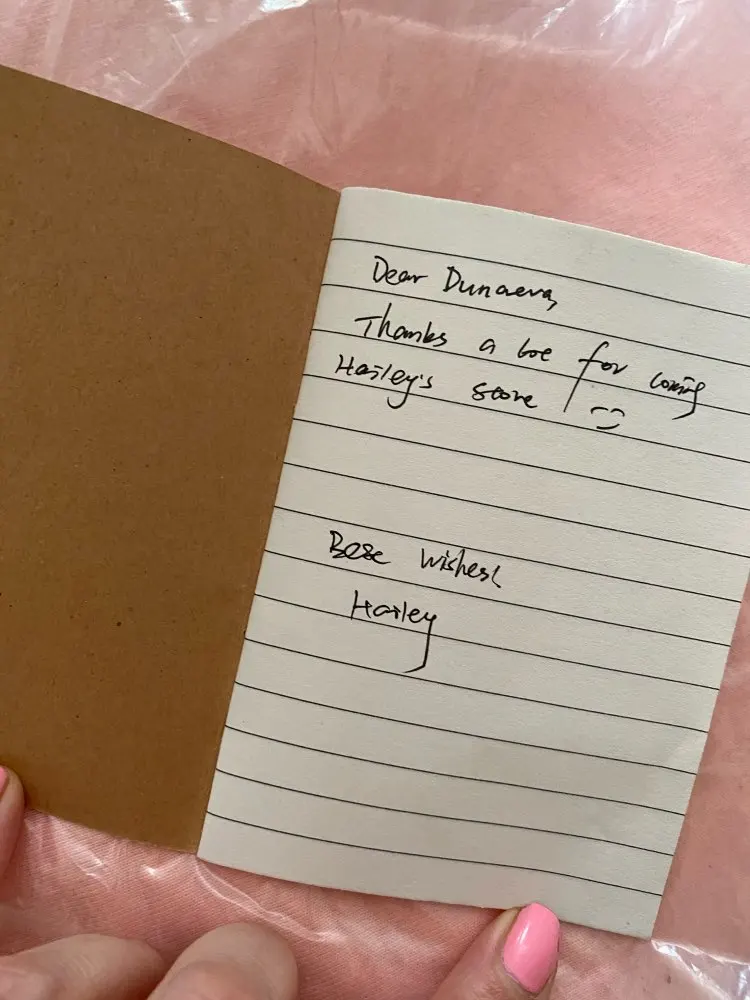 Dear Dunaeva,
Thanks a lot for coming
Hailey's store
Best wishes!
Hailey